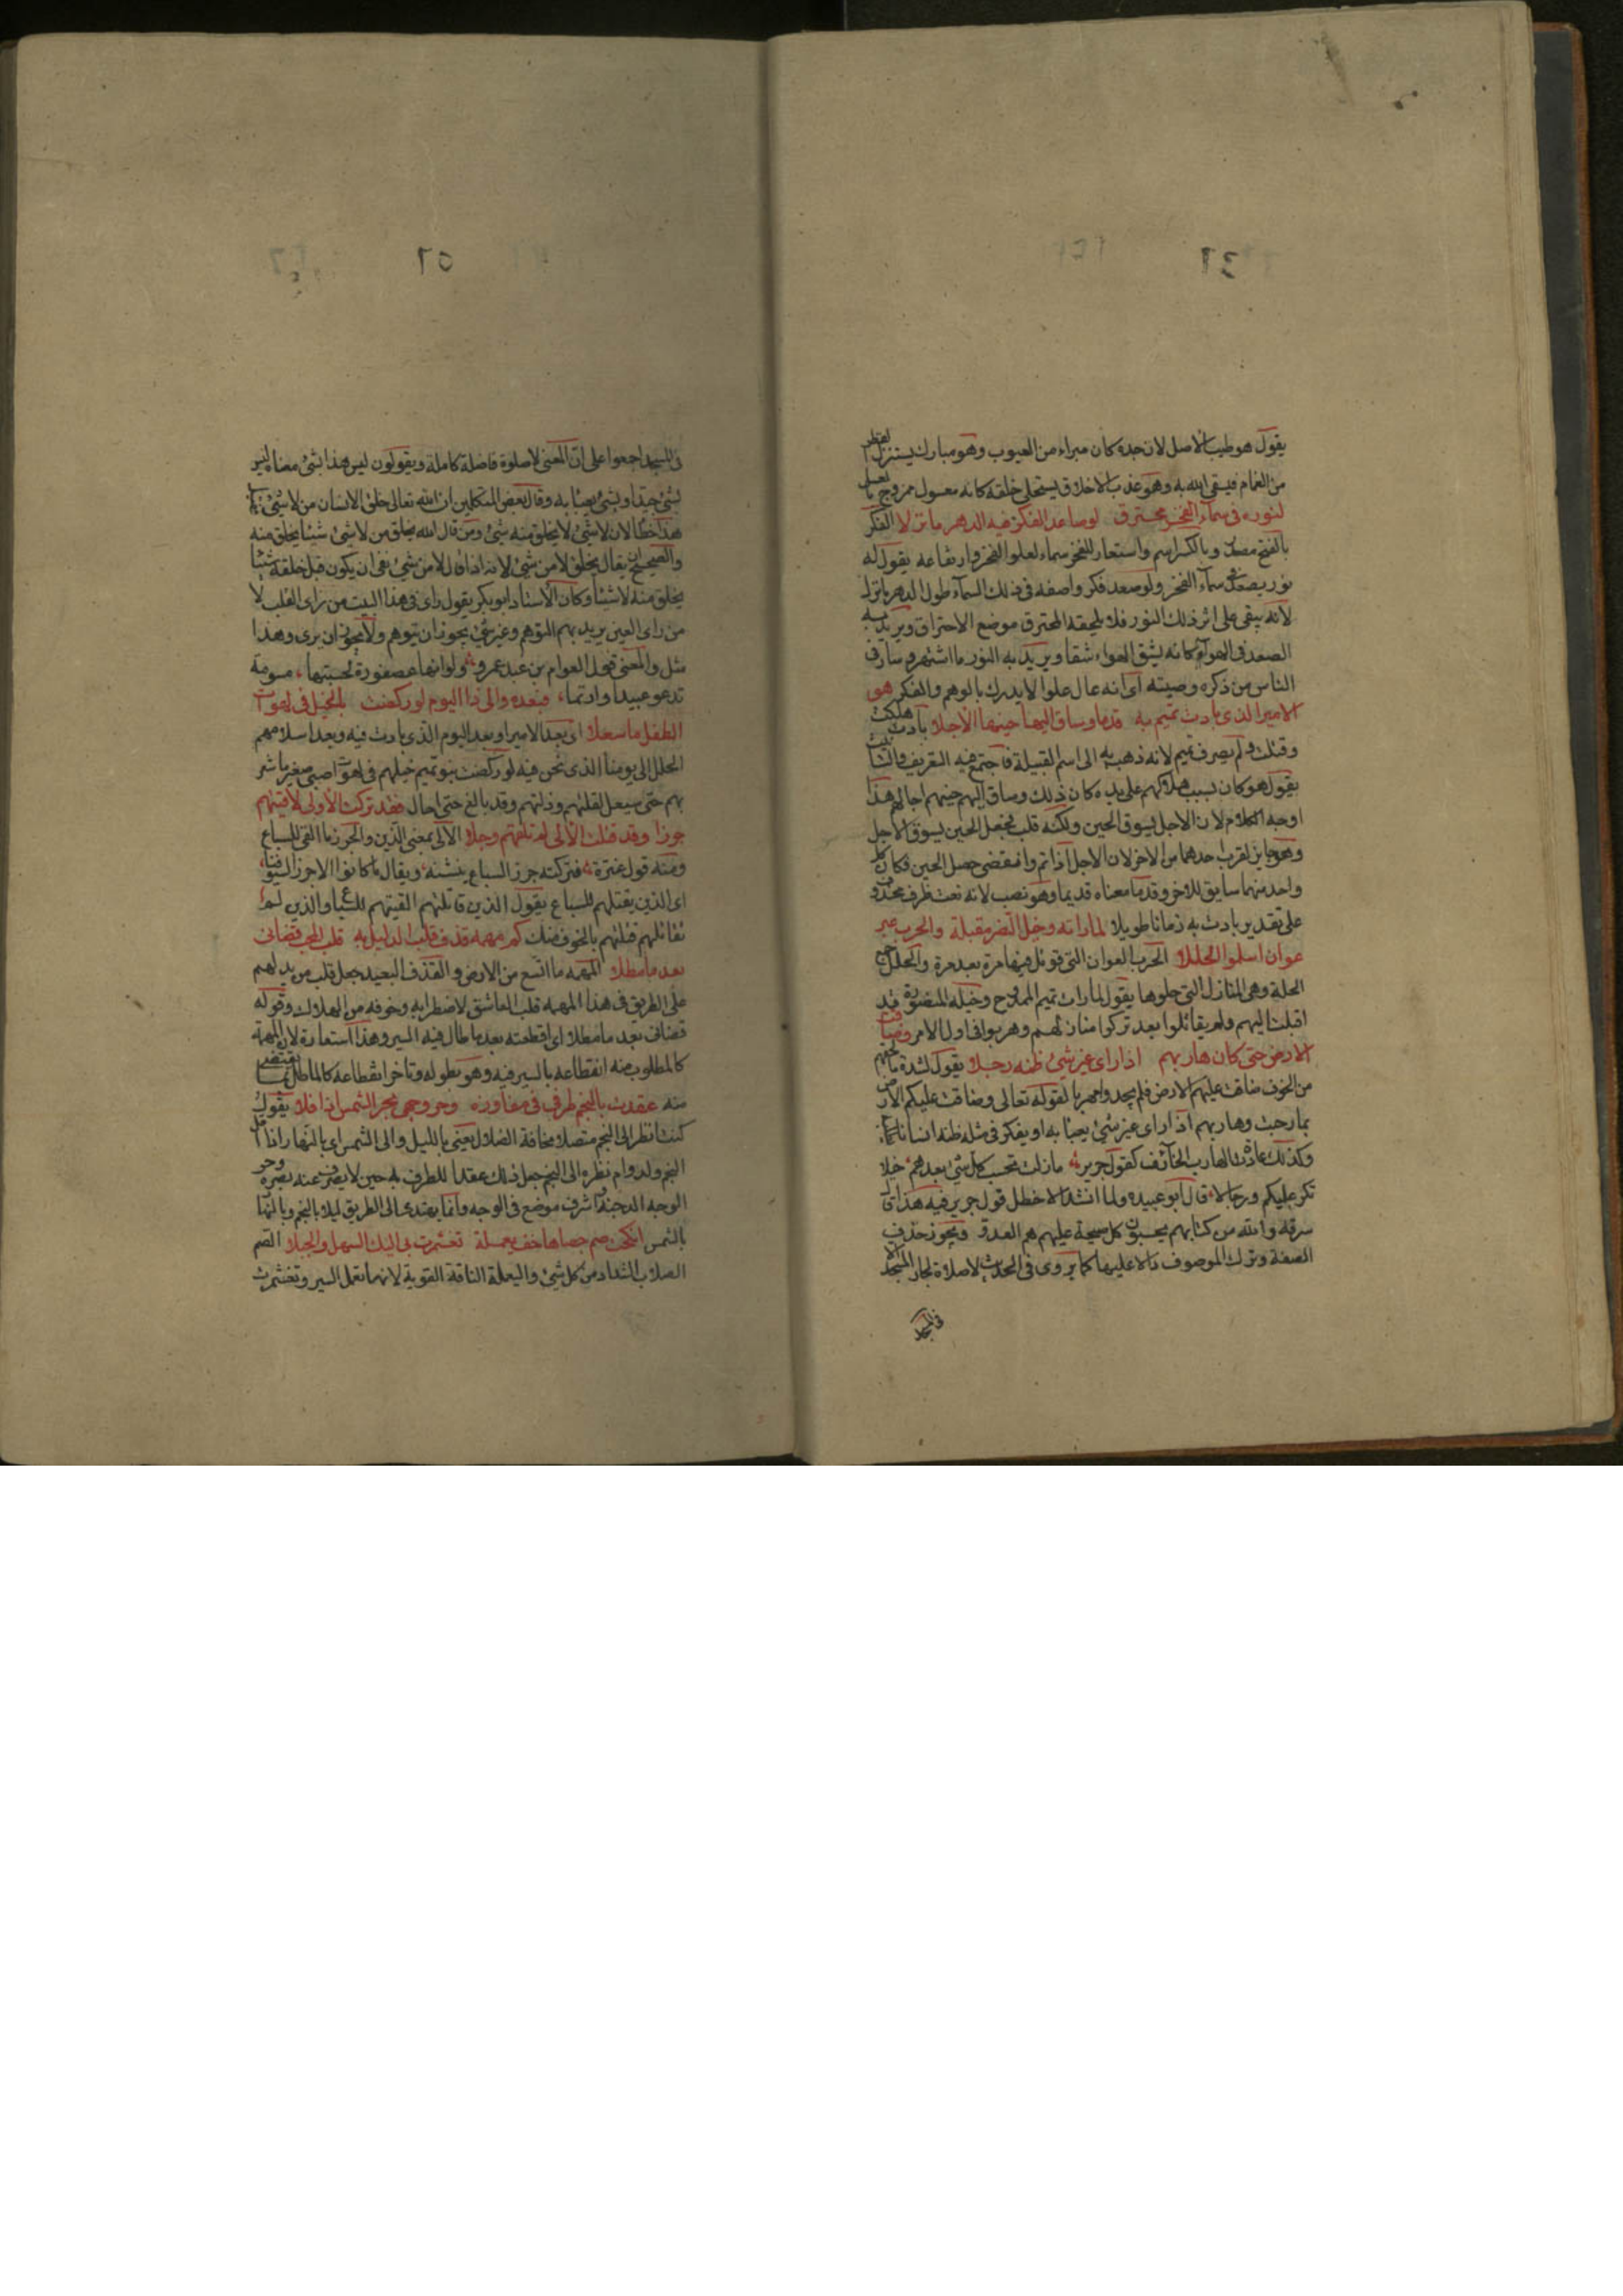 يقول هو طيب الاصل لان جده كان مبراء من العيوب وهو مبارك يستنزل القطر
من الغمام فيسقى الله به وهو عذب الاخلاق يستحلى خلقه كانه معسول ممزوج بالعسل
لنوره فى سماء الفخر مخترق لو صاعد الفكر فيه الدهر ما نزلا الفكر
بالفتح مصدر وبالكسر اسم واستعار للفخر سماء لعلو الفخر وارتفاعه يقول له
نور يصعد فى سماء الفخر ولو صعد فكر واصفه فى ذلك السماء طول الدهر ما نزل
لانه يبقى على اثر ذلك النور فلا يلحقه المخترق موضع الاحتراق ويريد به
الصعد فى الهوآء كانه يشق الهواء شقا ويريد به النور ما اشتهر وسار فى
الناس من ذكره وصيته اى انه عال علوا لا يدرك بالوهم والفكر هو
الامير الذى بادت تميم به قدما وساق اليها حينها الاجلا بادت هلكت
وقتلت ولم يصرف تميم لانه ذهب به الى اسم القبيلة فاجتمع فيه التعريف والتانيث
يقول هو كان سبب هلاكهم على يده كان ذلك وساق اليهم حينهم اجالهم هذا
اوجه الكلام لان الاجل يسوق الحين ولكنه قلب فجعل الحين يسوق الاجل
وهو جايز لقرب احدهما من الاخر لان الاجل اذا تم وانقضى حصل الحين فكان كل
واحد منهما سايق للاخر وقدما معناه قديما وهو نصب لانه نعت ظرف محذوف
على تقدير بادت به زمانا طويلا لما راته وخيل النصر مقبلة والحرب غير
عوان اسلموا الحللا الحرب العوان التى قوتل فيها مرة بعد مرة والحلل جمع
الحلة وهى المنازل التى حلوها يقول لما رات تميم الممدوح وخيله المنصورة قد
اقبلت اليهم ولم يقاتلوا بعد تركوا منازلهم وهربوا فى اول الامر وضاقت
الارض حتى كان هاربهم اذا راى غير شئ ظنه رجلا يقول لشدة ما لحقهم
من الخوف ضاقت عليهم الارض فلم يجدوا مهربا لقوله تعالى وضاقت عليكم الارض
بما رحبت وهاربهم اذا راى غير شئ يعبأ به او يفكر فى مثله ظنه انسانا
وكذلك عادة الهارب الخائف كقول جرير ما زلت تحسب كل شئ بعدهم خيلا
تكر عليكم ورجالا قال ابو عبيده ولما انشد الاخطل قول جرير فيه هذا قال
سرقه والله من كتابهم يحسبون كل صيحة عليهم هم العدو ويجوز حذف
الصفة وترك الموصوف دالا عليها كما يروى فى الحديث لا صلاة لجار المسجد الا
فى المسجد
فى المسجد اجمعوا على ان المعنى لا صلوة فاضلة كاملة ويقولون ليس هذا بشئ معناه ليس
بشئ جيد او بشئ يعبأ به وقال بعض المتكلمين ان الله تعالى خلق الانسان من لا شئ
هذا خطأ لان لا شئ لا يخلق منه شئ ومن قال الله يخلق من لا شئ شيئا يخلق منه
والصحيح ان يقال يخلق لا من شئ لانه اذا قال لا من شئ نفى ان يكون قبل خلقه شيئا
يخلق منه لا شيئا وكان الاستاد ابو بكر يقول راى فى هذا البيت من راى القلب لا
من راى العين يريد بهم التوهم وغير شئ يجوز ان يتوهم ولا يجوز ان يرى وهذا
مثل والمعنى قول العوام بن عبد عمرو ولو انها عصفورة لحسبتها مسومة
تدعو عبيدا وازنما فبعده والى ذا اليوم لو ركضت بالخيل فى لهوات
الطفل ما سعلا اى بعد الامير او بعد اليوم الذى بادت فيه وبعد اسلامهم
الحلل الى يومنا الذى نحن فيه لو ركضت بنو تميم خيلهم فى لهوات صبى صغير ما شر
بهم حتى سعل لقلتهم وذلتهم وقد بالغ حتى احال فقد تركت الاولى لاقيتهم
جزرا وقد قتلت الألى لم تلقهم وجلا الالى بمعنى الذين والجزر ما القى للسباع
ومنه قول عنترة فتركته جزر السباع ينشنه ويقال ما كانوا الا جزرا لسيوفنا
اى الذين يقتلهم للسباع يقول الذين قاتلتهم القيتهم للسباع والذين لم
تقاتلهم قتلتهم بالخوف منك كم مهمه قذف قلب الدليل به قلب المحب قضانى
بعد ما مطلا المهمه ما اتسع من الارض والقذف البعيد جعل قلب من يدلهم
على الطريق فى هذا المهمه قلب العاشق لاضطرابه وخوفه من الهلاك وقوله
قضانى بعد ما مطلا اى اقطعته بعد ما طال فيه السير وهذا استعارة لان المهمه
كالمطلوب منه انقطاعه بالسير فيه وهو بطوله وتأخر انقطاعه كالماطل بما يقتضى
منه عقدت بالنجم طرفى فى مفاوزه وحر وجهى بحر الشمس اذ افلا يقول
كنت انظر الى النجم متصلا مخافة الضلال يعنى بالليل والى الشمس اى بالنهار اذا افل
النجم ولدوام نظره الى النجم جعل ذلك عقدا للطرف به حين لا يصرف عنه بصره وحر
الوجه الوجنة اشرف موضع فى الوجه وانما يهتدى الى الطريق ليلا بالنجم وبالنهار
بالشمس انكحت صم حصاها خف يعملة تغشمرت بى اليك السهل والجبلا الصم
الصلاب الشداد من كل شئ واليعملة الناقة القوية لانها تعمل السير وتغشمرت